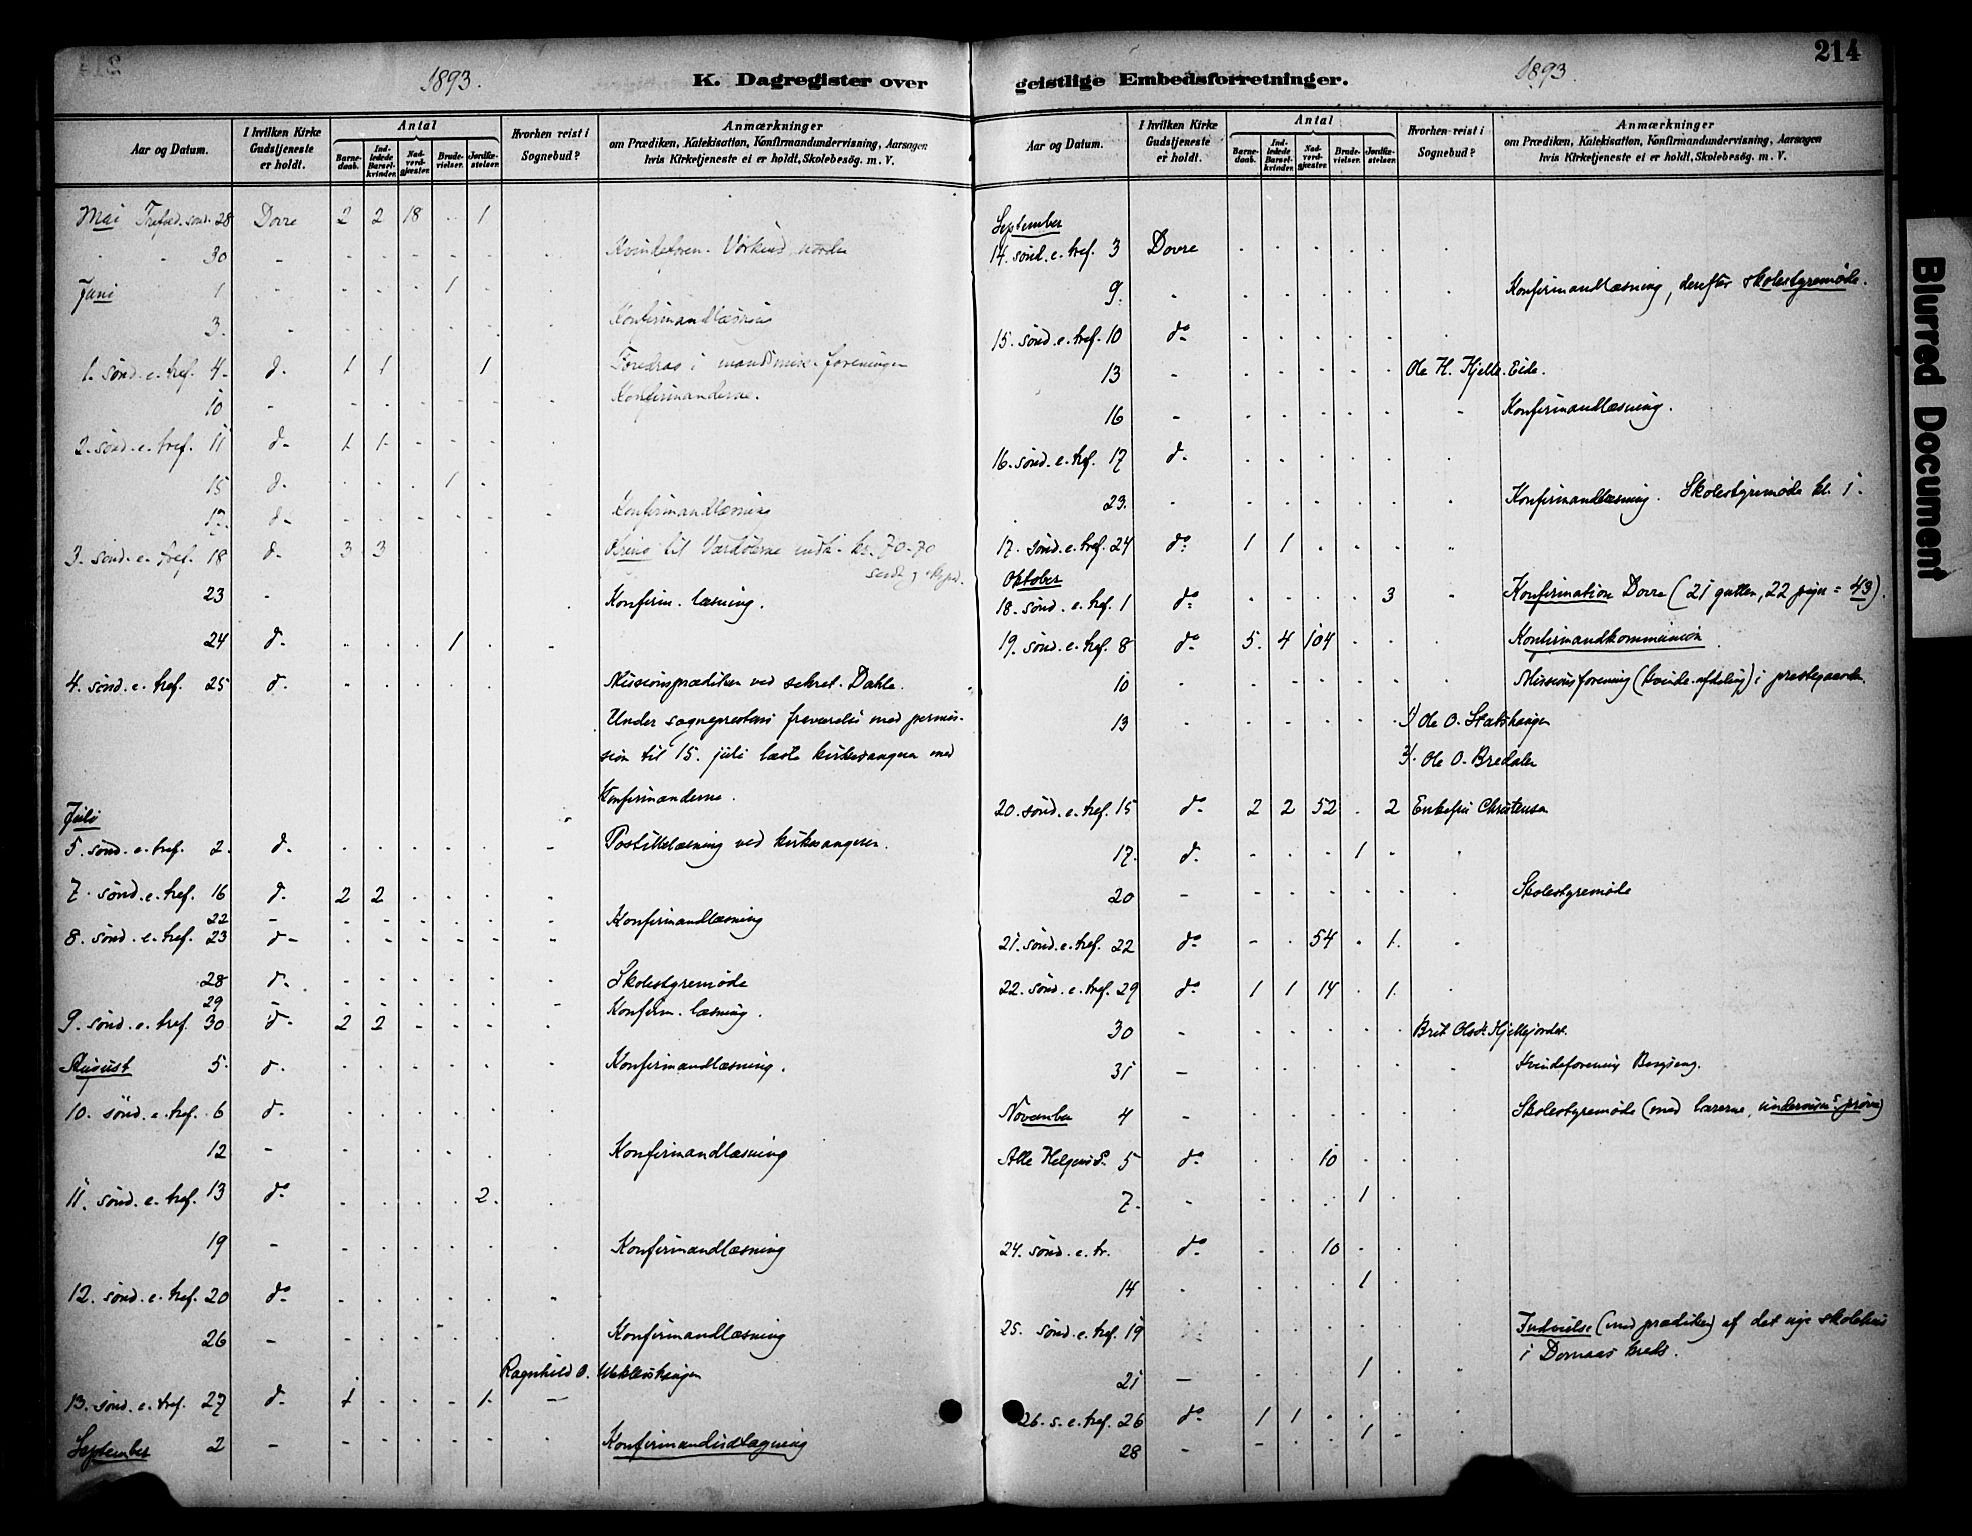 214
1893.
K. Dagregister over
Aar og Datum.
I hvilken Kirke Gudstjeneste er holdt.
Antal
Barnedaab.
Indledede Barselkvinder.
Nadverdgjæster.
Brudevielser.
Jordfæstelser.
Hvorhen reist i Sognebud?
Anmærkninger
om Prædiken, Katekisation, Konfirmandundervisning, Aarsagen
hvis Kirketjeneste ei er holdt, Skolebesög. m. V.
Mai Trefold. sønd. 28 Dovre 2 2 18 . 1
30 -
Juni 1 - 1
3. - Konfirmandlæsning
1. sønd. e. tref. 4. d. 1 1 1 Foredrag i
10 - Konfirmanderne.
2. sønd. e. tref. 11 d. 1 1
15 d. 1
17. d. Konfirmandlæsning
3. sønd. e. tref. 18 d. 3 3 til kr. 70-70
23 - Konfirm. læsning.
24 d. 1
4. sønd. e. tref. 25 d. Missionsprædiken ved sekret. Dahle.
Under sogneprestens fraværelse med permis-
sion til 15. juli læste kirkesangeren med
Konfirmanderne.
Juli
5. sønd. e. tref. 2. d. Postillelæsning ved kirkesangeren.
7. sønd. e. tref. 16 d. 2 2
22 - Konfirmandlæsning
8. sønd. e. tref. 23 d.
28 d. Skolestyremøde
29 - Konfirm. læsning.
9. sønd. e. tref. 30 d. 2 2
August 5. d. Konfirmandlæsning.
10. sønd. e. tref. 6 d.
12 - Konfirmandlæsning
11. sønd. e. tref. 13 do 2.
19 - Konfirmandlæsning
12. sønd. e. tref. 20 do
26 - Konfirmandlæsning
Ragnhild O.
13. sønd. e. tref. 27 d. 1 1.
September 2 - Konfirmandudtagning
geistlige Embedsforretninger.
1893.
214
Aar og Datum.
I hvilken Kirke Gudstjeneste er holdt.
Antal
Barnedaab.
Indledede Barselkvinder.
Nadverdgjæster.
Brudevielser.
Jordfæstelser.
Hvorhen reist i Sognebud?
Anmærkninger
om Prædiken, Katekisation, Konfirmandundervisning, Aarsagen
hvis Kirketjeneste ei er holdt, Skolebesög. m. V.
September
14. sønd. e. tref. 3 Dovre
9. - Konfirmandlæsning, derefter skolestyremøde.
15. sønd. e. tref. 10 do
13 - Ole H. Kjelle. Eide.
16 - Konfirmandlæsning.
16. sønd. e. tref. 17 d.
23. - Konfirmandlæsning. Skolestyremøde kl. 1.
17. sønd. e. tref. 24 do 1 1
Oktober
18. sønd. e. tref. 1 do 3 Konfirmation Dovre (21 gutter, 22 piger = 43).
19. sønd. e. tref. 8 do 5. 4 104 Konfirmandkommunion.
10 - Missionsforening (kvinde-afdeling) i prestegaarden.
13 - 1) Ole O.
2) Ole O. Bredalen
20. sønd. e. tref. 15 do 2 2 52 . 2 Enkefru Christensen
17. d. 1
20 - Skolestyremøde
21. sønd. e. tref. 22 do 54 . 1.
22. sønd. e. tref. 29 do 1 1 14 . 1.
30 - Brit Olsdt.
31 - Kvindeforening
November 4 - Skolestyremøde (med lærerne,
Alle Helgens d. 5 do 10
7. - 1
24. sønd. e. tr. do 10
14 - 1
25. sønd. e. tref. 19 Indvielse (med prædiken) af det nye skolehus
i kreds.
21 - 1
26. s. e. tref. 26 do 1 1
28 - 1
Blurred Document